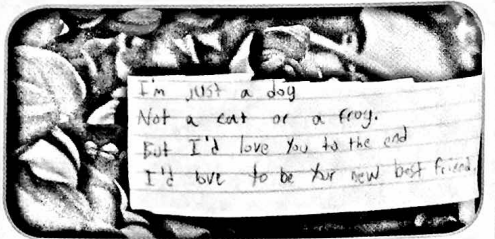 I'm just a dog
Not a cat or a frog.
But I'd love you to the end
I'd love to be your new best friend.